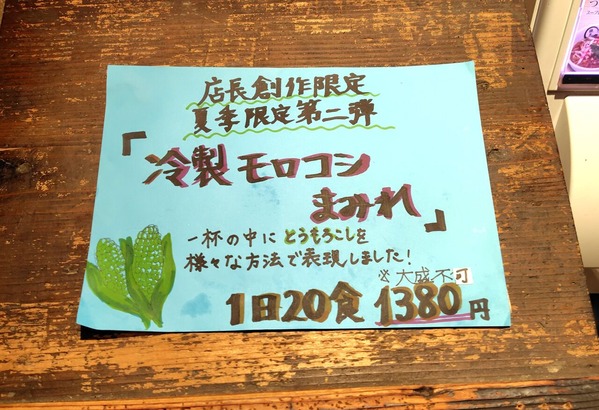 店長創作限定
夏季限定第二弾
「冷製モロコシ
まみれ」
一杯の中にとうもろこしを
様々な方法で表現しました!
※大成不可
1日20食 1380円